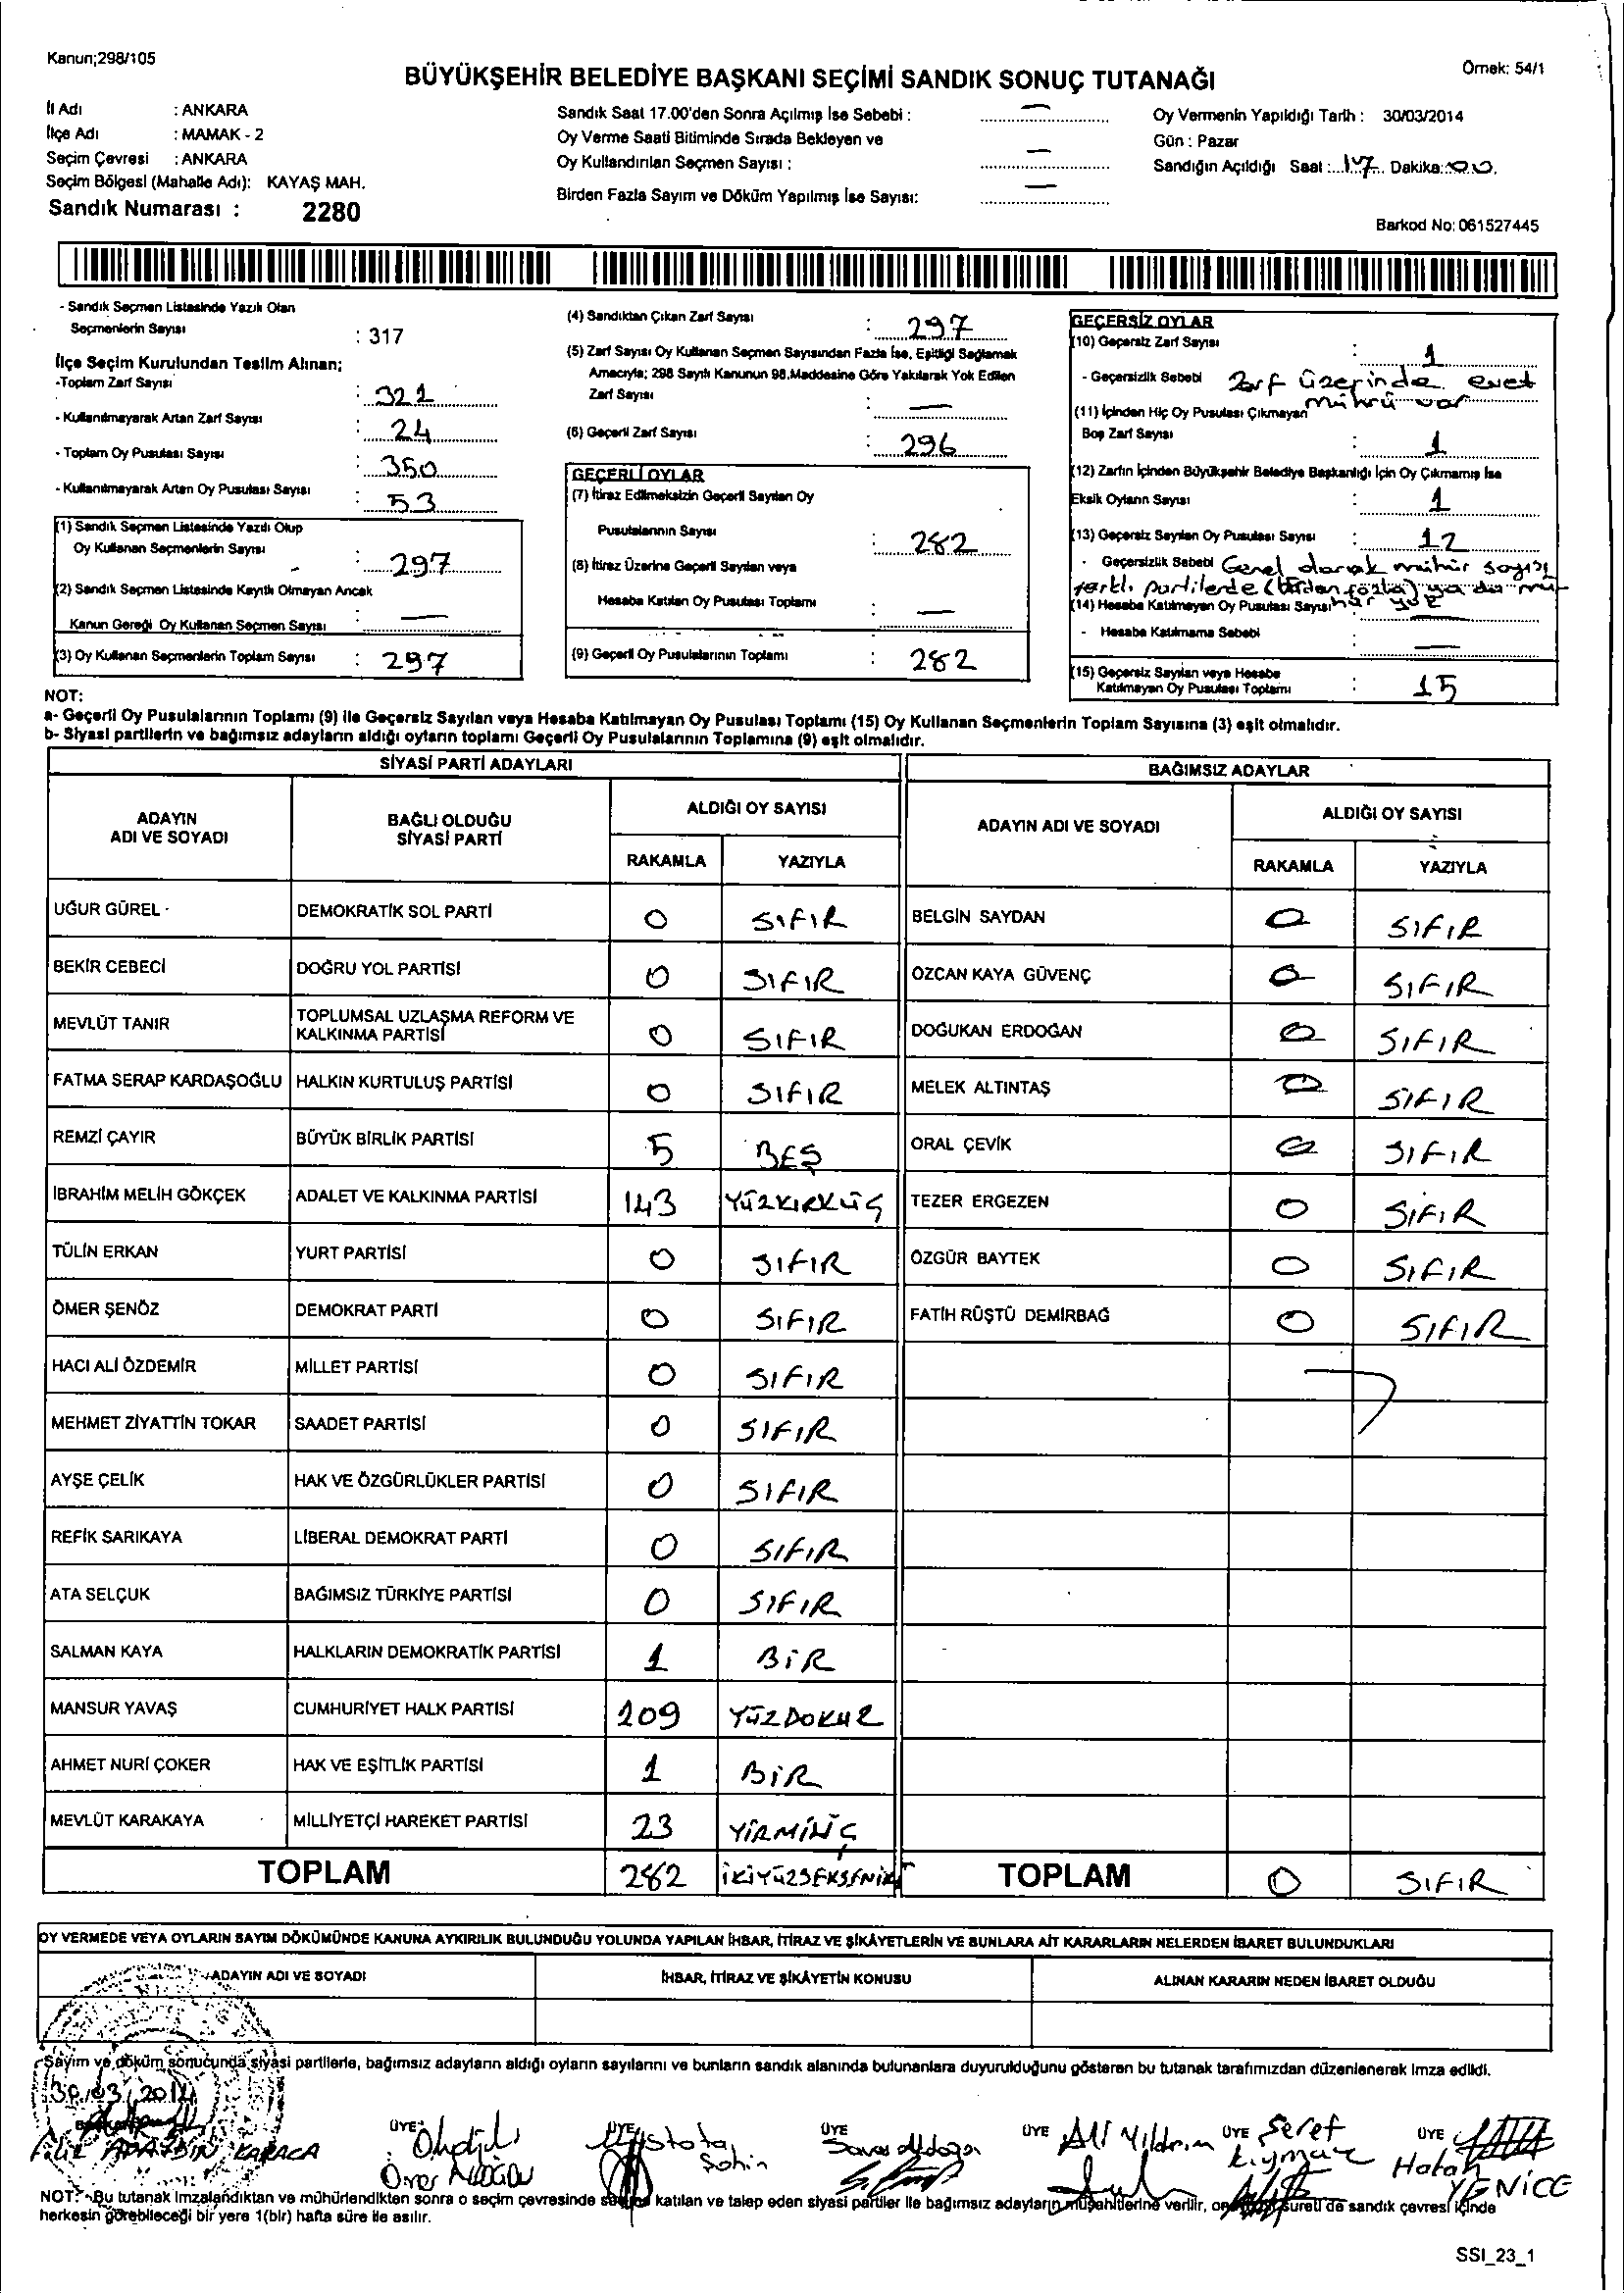 Kanun;298/105
BÜYÜKŞEHİR BELEDİYE BAŞKANI SEÇİMİ SANDIK SONUÇ TUTANAĞI
Örnek: 54/1
İl Adı : ANKARA
İlçe Adı : MAMAK - 2
Seçim Çevresi : ANKARA
Seçim Bölgesi (Mahalle Adı): KAYAŞ MAH.
Sandık Numarası : 2280
Sandık Saat 17.00'den Sonra Açılmış İse Sebebi : —
Oy Verme Saati Bitiminde Sırada Bekleyen ve
Oy Kullandırılan Seçmen Sayısı : —
Birden Fazla Sayım ve Döküm Yapılmış İse Sayısı: —
Oy Vermenin Yapıldığı Tarih : 30/03/2014
Gün : Pazar
Sandığın Açıldığı Saat :...17... Dakika:00.
Barkod No: 061527445
- Sandık Seçmen Listesinde Yazılı Olan
Seçmenlerin Sayısı : 317
İlçe Seçim Kurulundan Teslim Alınan;
-Toplam Zarf Sayısı : 321
- Kullanılmayarak Artan Zarf Sayısı : 24
- Toplam Oy Pusulası Sayısı : 350
- Kullanılmayarak Artan Oy Pusulası Sayısı : 53
(1) Sandık Seçmen Listesinde Yazılı Olup
Oy Kullanan Seçmenlerin Sayısı : 297
(2) Sandık Seçmen Listesinde Kayıtlı Olmayan Ancak
Kanun Gereği Oy Kullanan Seçmen Sayısı : —
(3) Oy Kullanan Seçmenlerin Toplam Sayısı : 297
(4) Sandıktan Çıkan Zarf Sayısı : 297
(5) Zarf Sayısı Oy Kullanan Seçmen Sayısından Fazla İse, Eşitliği Sağlamak
Amacıyla; 298 Sayılı Kanunun 98.Maddesine Göre Yakılarak Yok Edilen
Zarf Sayısı : —
(6) Geçerli Zarf Sayısı : 296
GEÇERLİ OYLAR
(7) İtiraz Edilmeksizin Geçerli Sayılan Oy
Pusulalarının Sayısı : 282
(8) İtiraz Üzerine Geçerli Sayılan veya
Hesaba Katılan Oy Pusulası Toplamı : —
(9) Geçerli Oy Pusulalarının Toplamı : 282
GEÇERSİZ OYLAR
(10) Geçersiz Zarf Sayısı : 1
- Geçersizlik Sebebi Zarf üzerinde evet
mührü var
(11) İçinden Hiç Oy Pusulası Çıkmayan
Boş Zarf Sayısı : 1
(12) Zarfın İçinden Büyükşehir Belediye Başkanlığı İçin Oy Çıkmamış İse
Eksik Oyların Sayısı : 1
(13) Geçersiz Sayılan Oy Pusulası Sayısı : 12
- Geçersizlik Sebebi Genel olarak mühür sayısı
farklı partilerde (birden fazla) ya da mü-
hür yok
(14) Hesaba Katılmayan Oy Pusulası Sayısı —
- Hesaba Katılmama Sebebi : —
(15) Geçersiz Sayılan veya Hesaba
Katılmayan Oy Pusulası Toplamı : 15
NOT:
a- Geçerli Oy Pusulalarının Toplamı (9) ile Geçersiz Sayılan veya Hesaba Katılmayan Oy Pusulası Toplamı (15) Oy Kullanan Seçmenlerin Toplam Sayısına (3) eşit olmalıdır.
b- Siyasi partilerin ve bağımsız adayların aldığı oyların toplamı Geçerli Oy Pusulalarının Toplamına (9) eşit olmalıdır.
SİYASİ PARTİ ADAYLARI
BAĞIMSIZ ADAYLAR
ADAYIN ADI VE SOYADI
BAĞLI OLDUĞU SİYASİ PARTİ
ALDIĞI OY SAYISI
RAKAMLA YAZIYLA
ADAYIN ADI VE SOYADI
ALDIĞI OY SAYISI
RAKAMLA YAZIYLA
UĞUR GÜREL DEMOKRATİK SOL PARTİ 0 SIFIR BELGİN SAYDAN 0 SIFIR
BEKİR CEBECİ DOĞRU YOL PARTİSİ 0 SIFIR ÖZCAN KAYA GÜVENÇ 0 SIFIR
MEVLÜT TANIR TOPLUMSAL UZLAŞMA REFORM VE KALKINMA PARTİSİ 0 SIFIR DOĞUKAN ERDOĞAN 0 SIFIR
FATMA SERAP KARDAŞOĞLU HALKIN KURTULUŞ PARTİSİ 0 SIFIR MELEK ALTINTAŞ 0 SIFIR
REMZİ ÇAYIR BÜYÜK BİRLİK PARTİSİ 5 BEŞ ORAL ÇEVİK 0 SIFIR
İBRAHİM MELİH GÖKÇEK ADALET VE KALKINMA PARTİSİ 143 YÜZKIRKÜÇ TEZER ERGEZEN 0 SIFIR
TÜLİN ERKAN YURT PARTİSİ 0 SIFIR ÖZGÜR BAYTEK 0 SIFIR
ÖMER ŞENÖZ DEMOKRAT PARTİ 0 SIFIR FATİH RÜŞTÜ DEMİRBAĞ 0 SIFIR
HACI ALİ ÖZDEMİR MİLLET PARTİSİ 0 SIFIR
MEHMET ZİYATTİN TOKAR SAADET PARTİSİ 0 SIFIR
AYŞE ÇELİK HAK VE ÖZGÜRLÜKLER PARTİSİ 0 SIFIR
REFİK SARIKAYA LİBERAL DEMOKRAT PARTİ 0 SIFIR
ATA SELÇUK BAĞIMSIZ TÜRKİYE PARTİSİ 0 SIFIR
SALMAN KAYA HALKLARIN DEMOKRATİK PARTİSİ 1 BİR
MANSUR YAVAŞ CUMHURİYET HALK PARTİSİ 109 YÜZDOKUZ
AHMET NURİ ÇOKER HAK VE EŞİTLİK PARTİSİ 1 BİR
MEVLÜT KARAKAYA MİLLİYETÇİ HAREKET PARTİSİ 23 YİRMİÜÇ
TOPLAM 282 İKİYÜZSEKSENİKİ TOPLAM 0 SIFIR
OY VERMEDE VEYA OYLARIN SAYIM DÖKÜMÜNDE KANUNA AYKIRILIK BULUNDUĞU YOLUNDA YAPILAN İHBAR, İTİRAZ VE ŞİKÂYETLERİN VE BUNLARA AİT KARARLARIN NELERDEN İBARET BULUNDUKLARI
ADAYIN ADI VE SOYADI İHBAR, İTİRAZ VE ŞİKÂYETİN KONUSU ALINAN KARARIN NEDEN İBARET OLDUĞU
Sayım ve döküm sonucunda siyasi partilerle, bağımsız adayların aldığı oyların sayılarını ve bunların sandık alanında bulunanlara duyurulduğunu gösteren bu tutanak tarafımızdan düzenlenerek imza edildi.
30/03/2014
ÜYE ÜYE ÜYE Savaş ÜYE Ali Yıldırım ÜYE Şeref ÜYE
KARACA Ömer Şahin Hatah YENİCE
NOT:-Bu tutanak imzalandıktan ve mühürlendikten sonra o seçim çevresinde katılan ve talep eden siyasi partiler ile bağımsız adayların müşahitlerine verilir, sureti de sandık çevresi içinde
herkesin görebileceği bir yere 1(bir) hafta süre ile asılır.
SSI_23_1